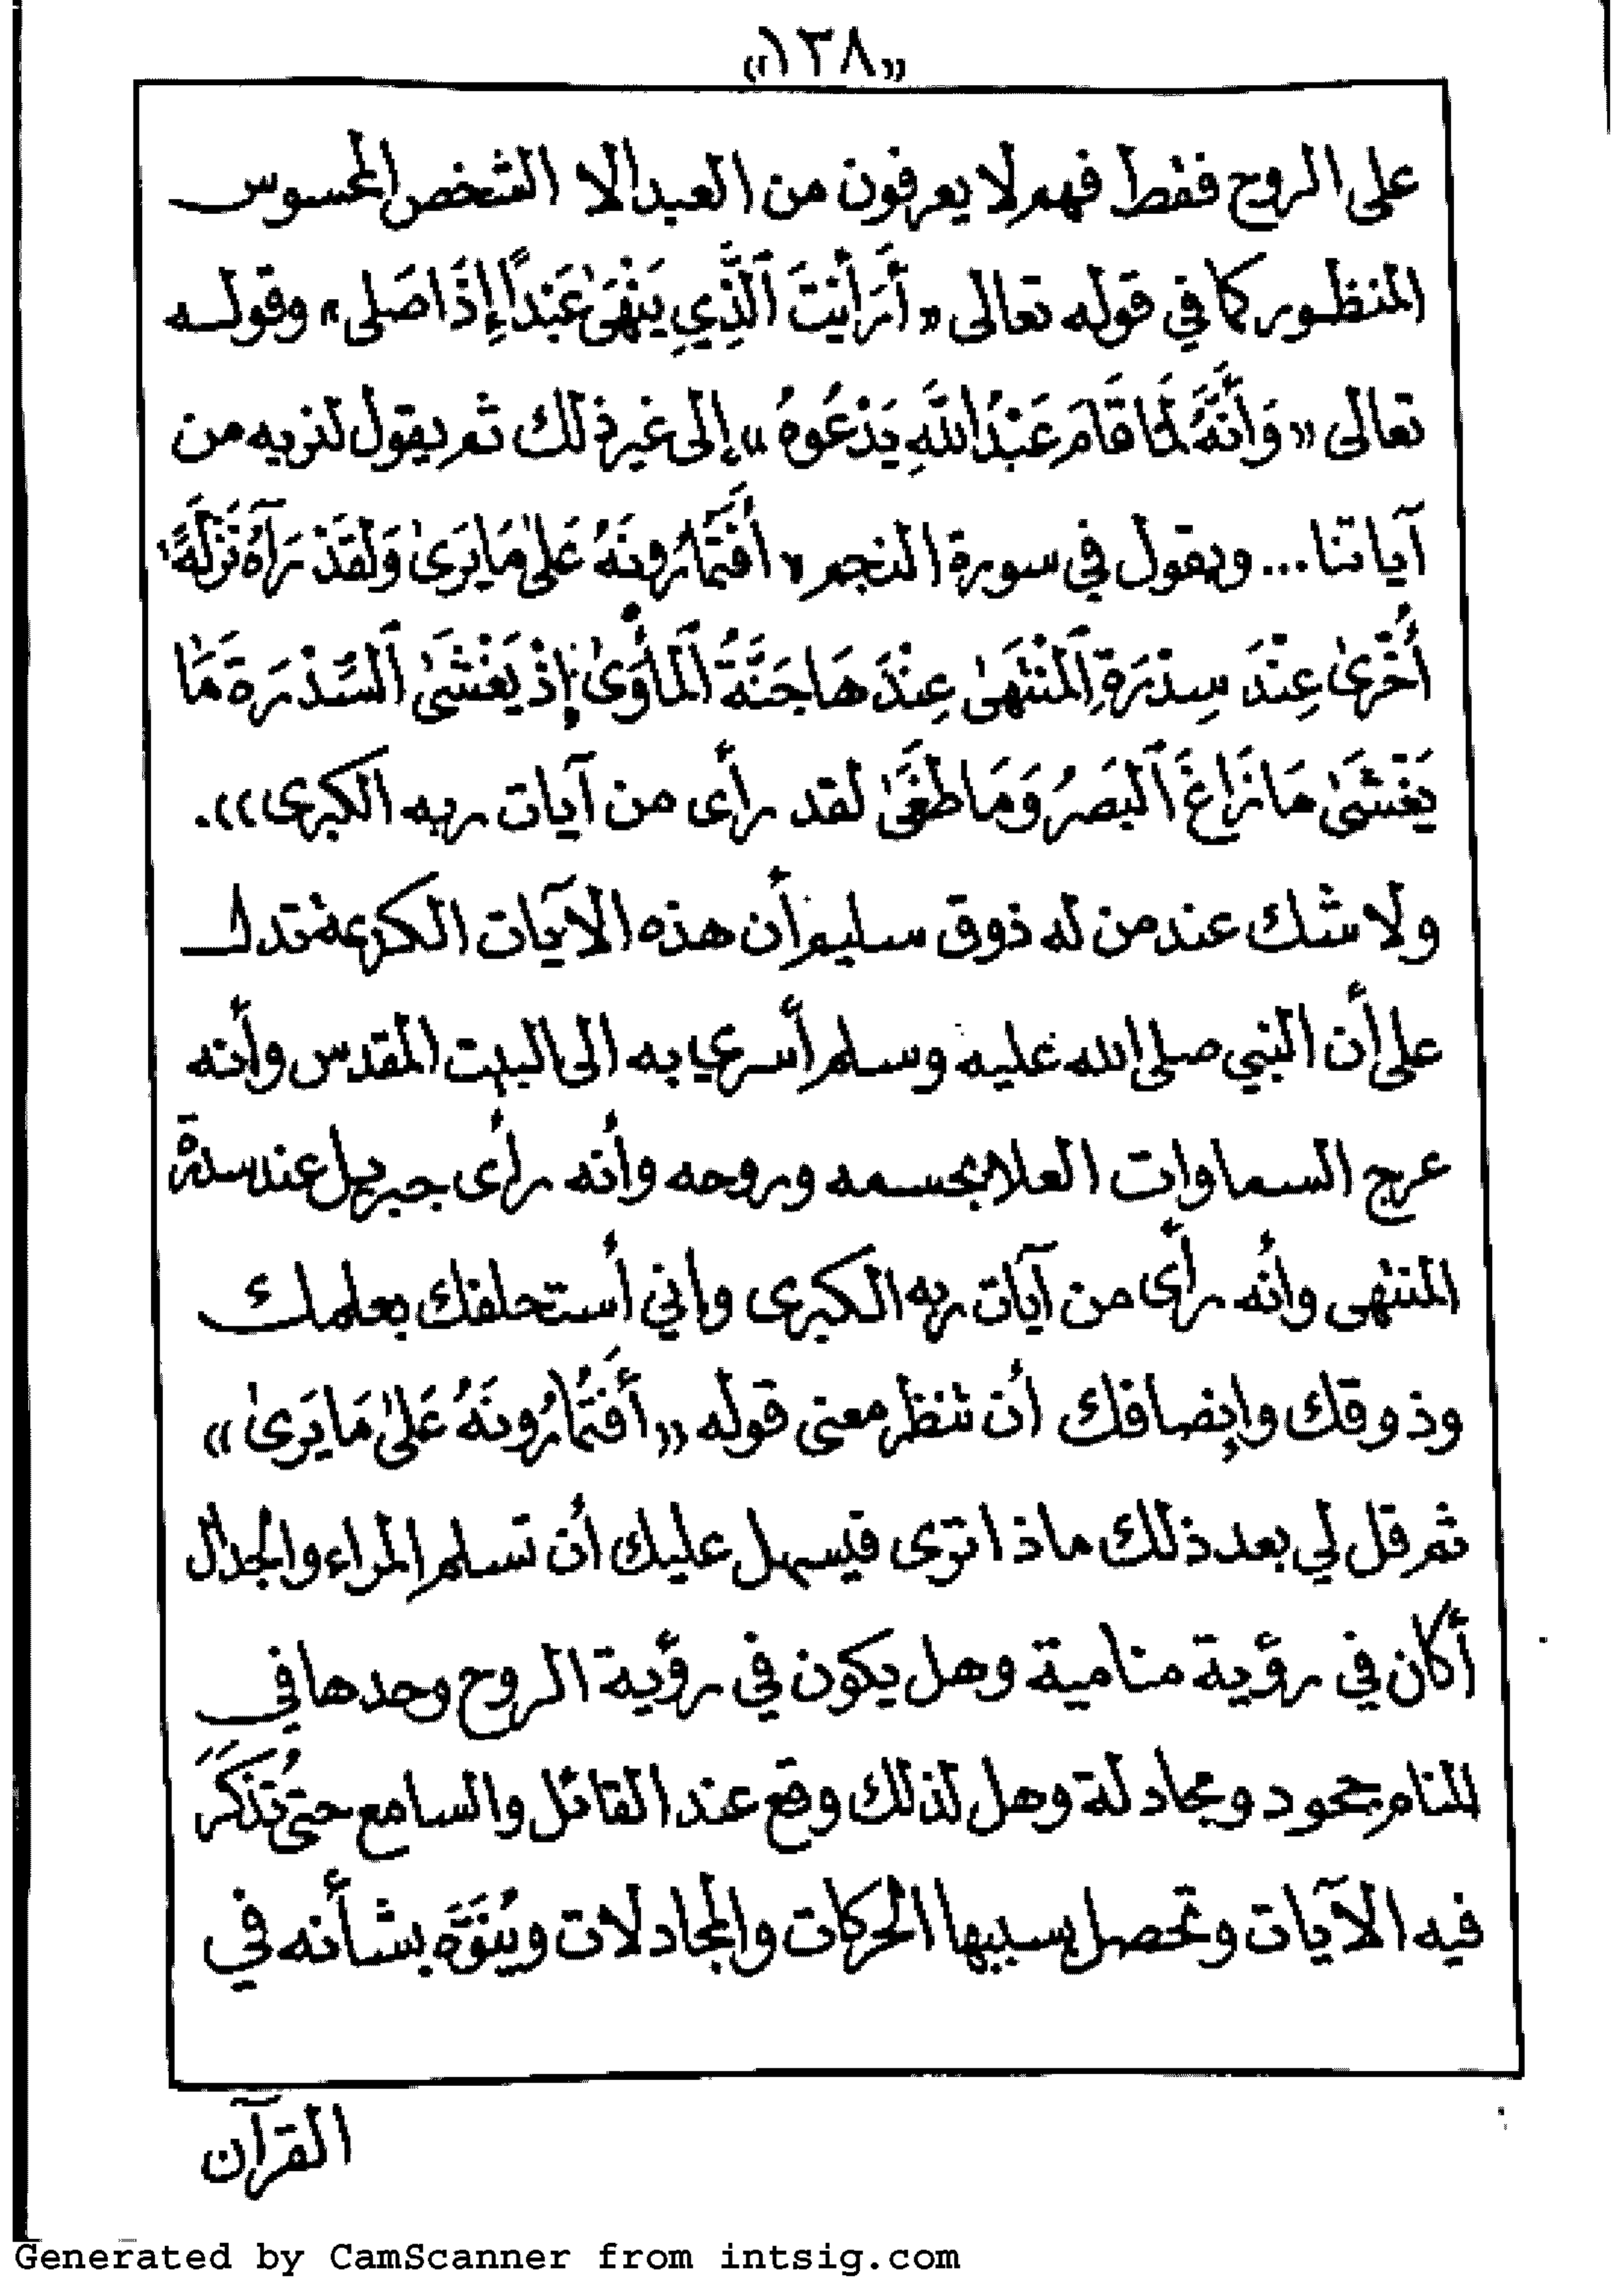 «١٣٨»
على الروح فقط فهم لا يعرفون من العبد الا الشخص المحسوس
المنظور كما في قوله تعالى «أَرَأَيْتَ ٱلَّذِي يَنْهَىٰ عَبْداً إِذَا صَلى» وقوله
تعالى «وَأَنَّهُ لَمَّا قَامَ عَبْدُ اللَّهِ يَدْعُوهُ» إلى غير ذلك ثم يقول لنريه من
آياتنا... ويقول في سورة النجم «أَفَتُمَارُونَهُ عَلَىٰ مَا يَرَىٰ وَلَقَدْ رَآهُ نَزْلَةً
أُخْرَىٰ عِنْدَ سِدْرَةِ ٱلْمُنْتَهَىٰ عِنْدَهَا جَنَّةُ ٱلْمَأْوَىٰ إِذْ يَغْشَىٰ ٱلسِّدْرَةَ مَا
يَغْشَىٰ مَا زَاغَ ٱلْبَصَرُ وَمَا طَغَىٰ لقد رأى من آيات ربه الكبرى)).
ولا شك عند من له ذوق سليم أن هذه الآيات الكريمة تدل
على أن النبي صلى الله عليه وسلم أسري به الى البيت المقدس وأنه
عرج السماوات العلا بجسمه وروحه وأنه رأى جبريل عند سدرة
المنتهى وأنه رأى من آيات ربه الكبرى وإني أستحلفك بعلمك
وذوقك وإنصافك أن تنظر معنى قوله «أَفَتُمَارُونَهُ عَلَىٰ مَا يَرَىٰ»
ثم قل لي بعد ذلك ماذا ترى فيسهل عليك أن تسلم المراء والجدال
أكان في رؤية منامية وهل يكون في رؤية الروح وحدها في
المنام جحود ومجادلة وهل لذلك وقع عند القائل والسامع حتى تُذكَر
فيه الآيات وتحصل بسببها الحركات والمجادلات ويُنَوَّه بشأنه في
القرآن
Generated by CamScanner from intsig.com